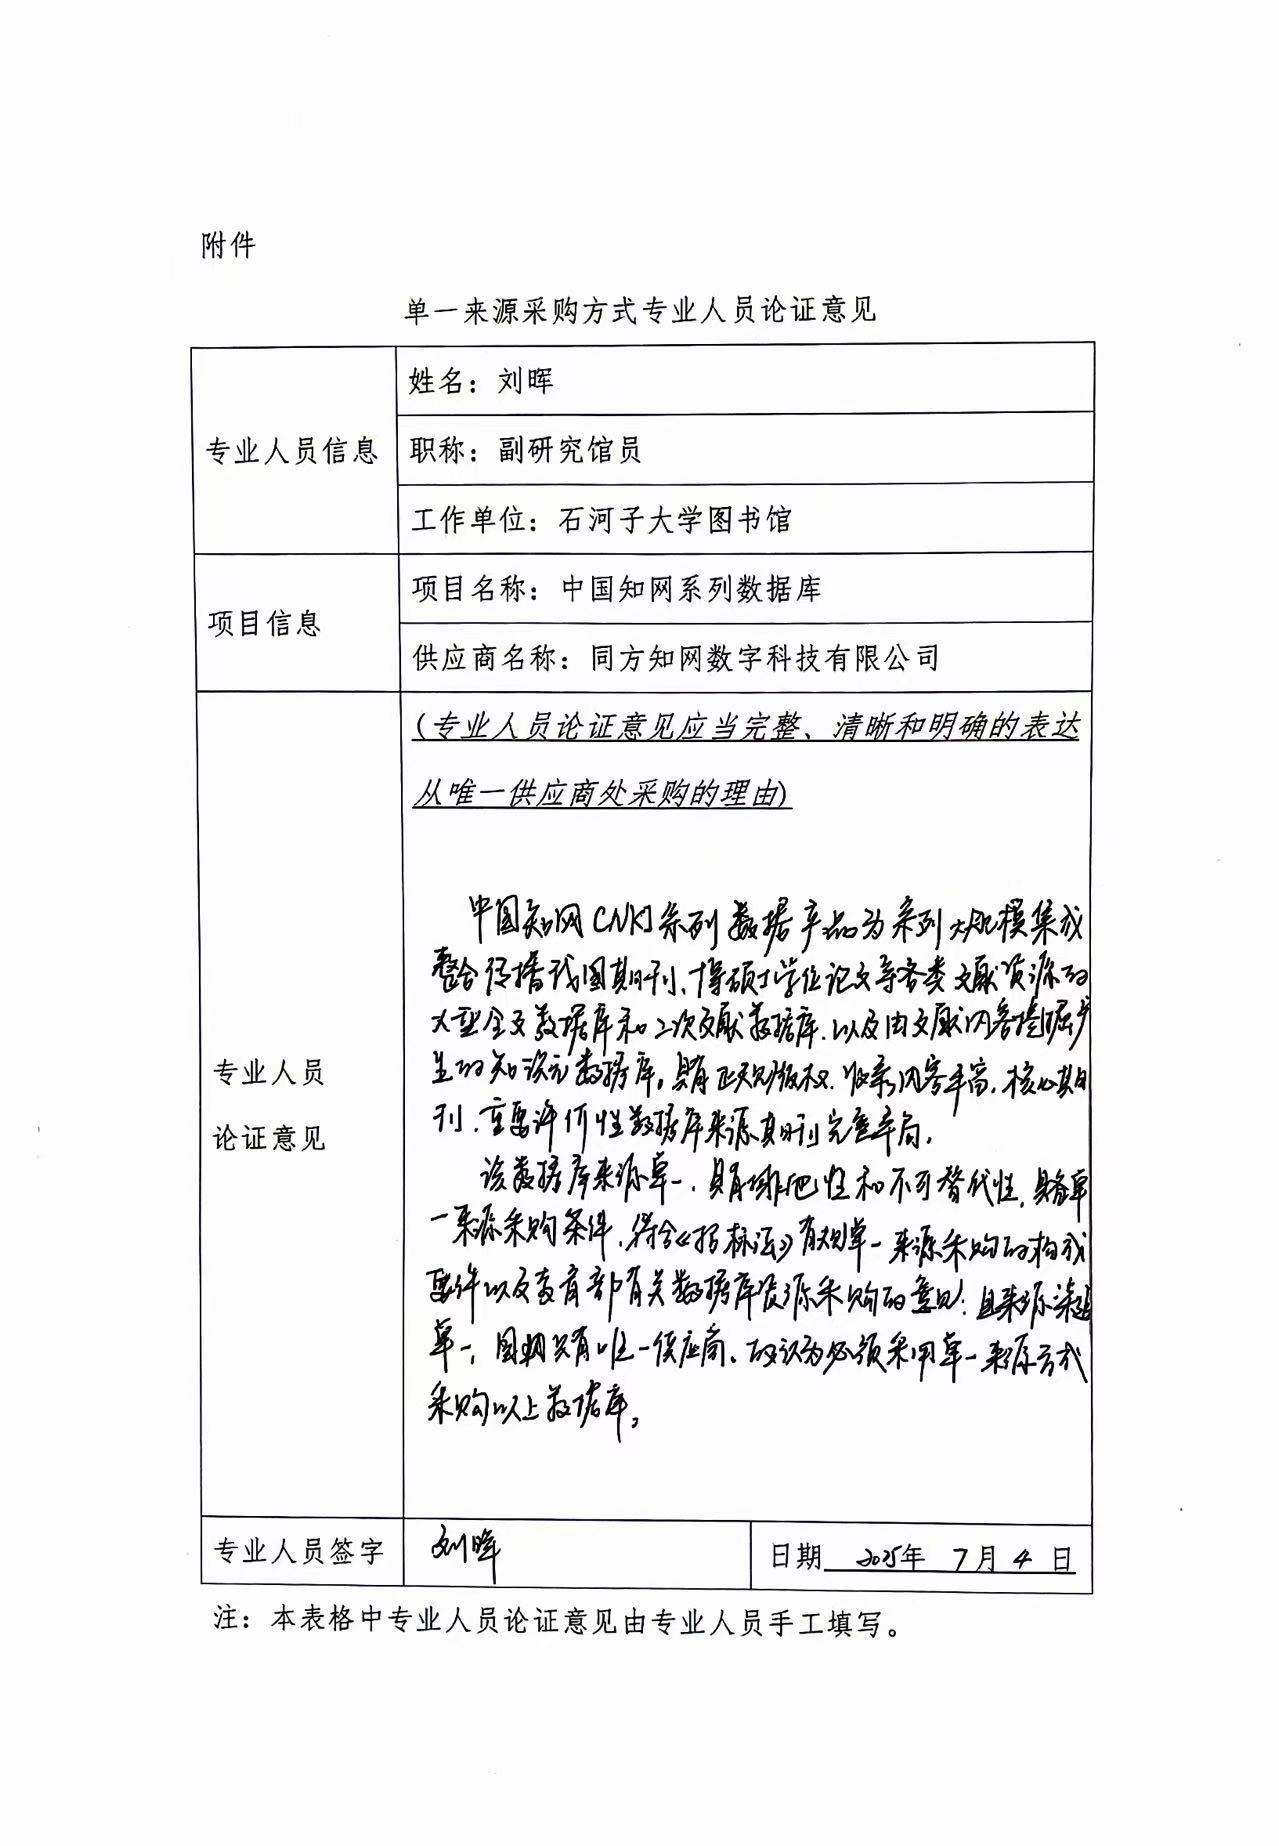 附件
单一来源采购方式专业人员论证意见
专业人员信息
姓名：刘晖
职称：副研究馆员
工作单位：石河子大学图书馆
项目信息
项目名称：中国知网系列数据库
供应商名称：同方知网数字科技有限公司
专业人员
论证意见
（专业人员论证意见应当完整、清晰和明确的表达
从唯一供应商处采购的理由）
中国知网CNKI系列数据产品为系列大规模集成
整合传播我国期刊、博硕士学位论文等各类文献资源的
大型全文数据库和二次文献数据库，以及由文献内容挖掘产
生的知识元数据库。具有正规版权，收录内容丰富，核心期
刊、重要评价性数据库来源期刊完整率高。
该数据库来源单一，具有排他性和不可替代性，具备单
一来源采购条件，符合《招标法》有规单一来源采购的构成
要件以及教育部有关数据库资源采购的意见：且来源渠道
单一，国内只有唯一供应商，故认为必须采用单一来源方式
采购以上数据库。
专业人员签字
刘晖
日期 2025年 7月 4 日
注：本表格中专业人员论证意见由专业人员手工填写。